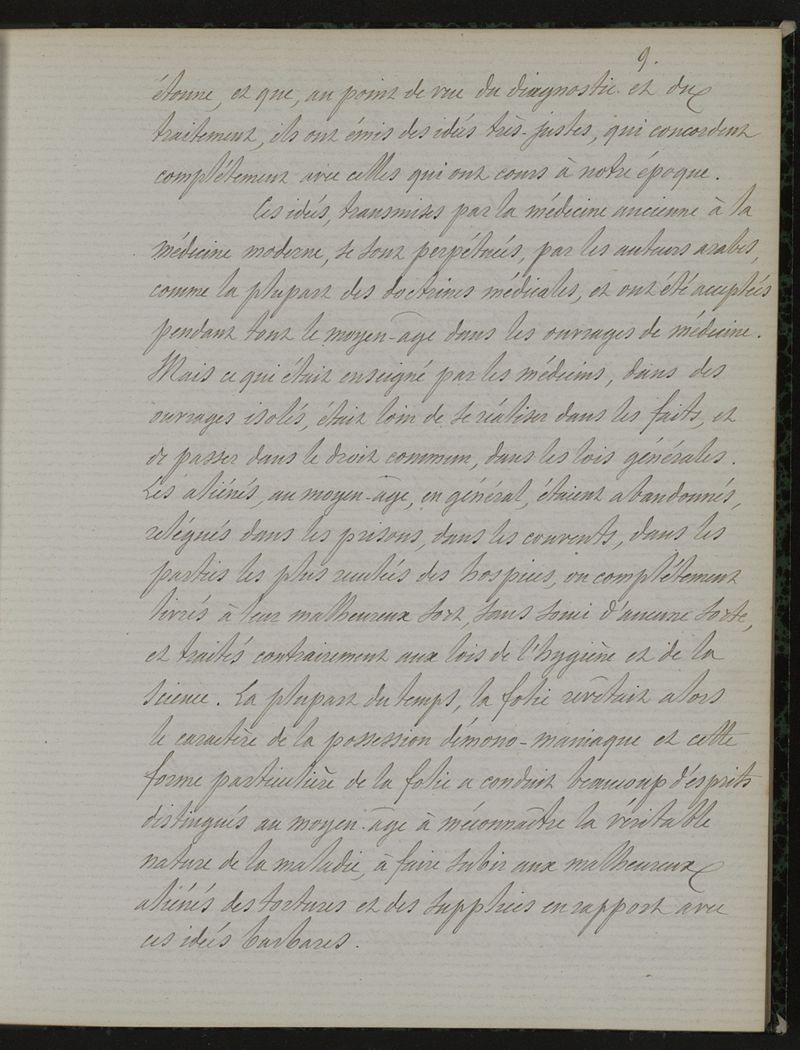 9.
étonne, et que, au point de vue du diagnostic et du
traitement, ils ont émis des idées très-justes, qui concordent
complétement avec celles qui ont cours à notre époque.
Ces idées, transmises par la médecine ancienne à la
médecine moderne, se sont perpétuées, par les auteurs arabes,
comme la plupart des doctrines médicales, et ont été acceptées
pendant tout le moyen-âge dans les ouvrages de médecine.
Mais ce qui était enseigné par les médecins, dans des
ouvrages isolés, était loin de se réaliser dans les faits, et
de passer dans le droit commun, dans les lois générales.
Les aliénés, au moyen-âge, en général, étaient abandonnés,
relégués dans les prisons, dans les couvents, dans les
parties les plus reculées des hospices, ou complétement
livrés à leur malheureux sort, sans souci d'aucune sorte,
et traités contrairement aux lois de l'hygiène et de la
science. La plupart du temps, la folie revêtait alors
le caractère de la possession démono-maniaque et cette
forme particulière de la folie a conduit beaucoup d'esprits
distingués au moyen-âge à méconnaître la véritable
nature de la maladie, à faire subir aux malheureux
aliénés des tortures et des supplices en rapport avec
ces idées barbares.